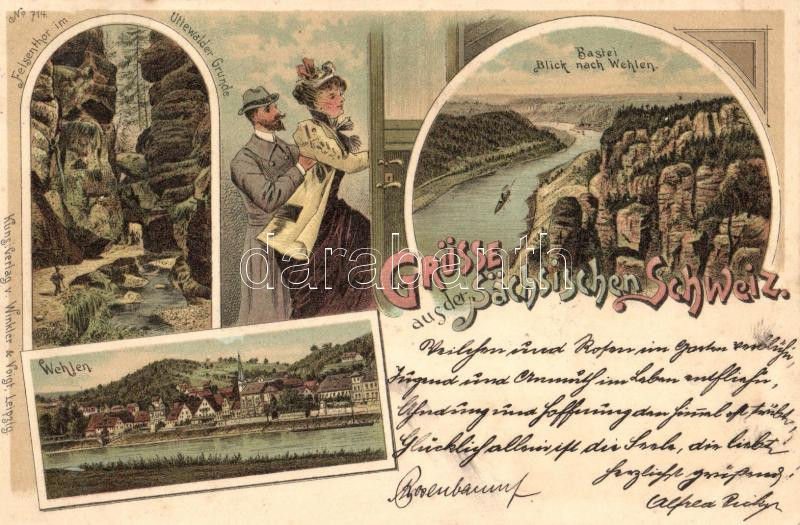 No 714.
Felsenthor im
Uttewalder Grunde
Bastei
Blick nach Wehlen.
Kunstverlag v. Winkler & Voigt, Leipzig
darabanth
GRÜSSE
aus der Sächsischen Schweiz.
Wehlen.
Veilchen und Rosen im Garten verblühn,
Jugend und Anmuth im Leben entfliehn,
Ahndung und Hoffnung den
Glücklich allein ist die Seele, die liebt
Herzlichst grüssend!
Rosenbaum
Alfred